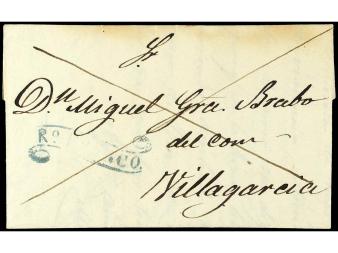 Sr.
Dn. Miguel Gra. Brabo
del Com
Villagarcia
Ro
CO